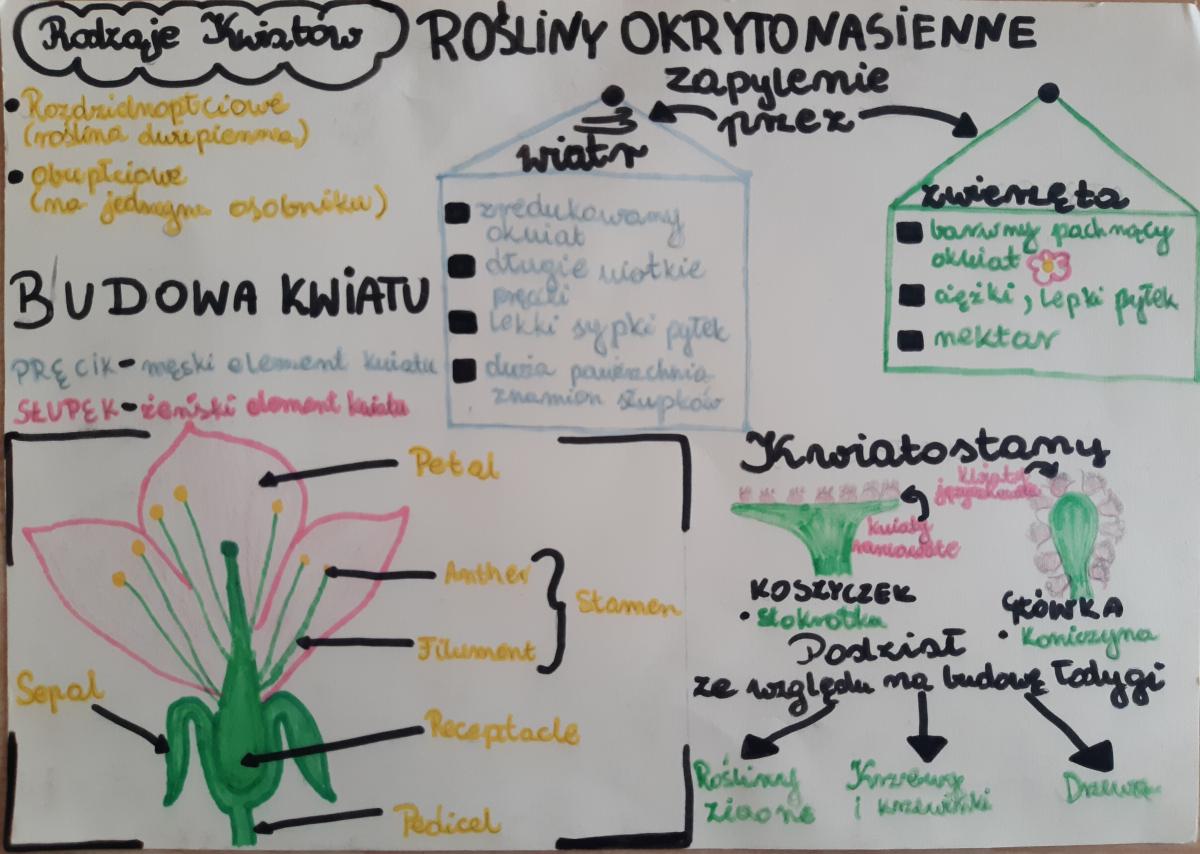 Rodzaje Kwiatów
ROŚLINY OKRYTONASIENNE
• Rozdzielnopłciowe
(roślina dwupienna)
• obupłciowe
(na jednym osobniku)
zapylenie
przez
wiatr
zredukowany
okwiat
długie wiotkie
pręciki
lekki sypki pyłek
duża powierzchnia
znamion słupków
zwierzęta
barwny pachnący
okwiat
ciężki, lepki pyłek
nektar
BUDOWA KWIATU
PRĘCIK - męski element kwiatu
SŁUPEK - żeński element kwiatu
Petal
Anther
Stamen
Filument
Sepal
Receptacle
Pedicel
Kwiatostany
kwiaty
kwiaty
języczkowate
KOSZYCZEK
• Stokrotka
GŁÓWKA
• Koniczyna
Podział
ze względu na budowę łodygi
Rośliny
zielone
Krzewy
i krzewinki
Drzewa